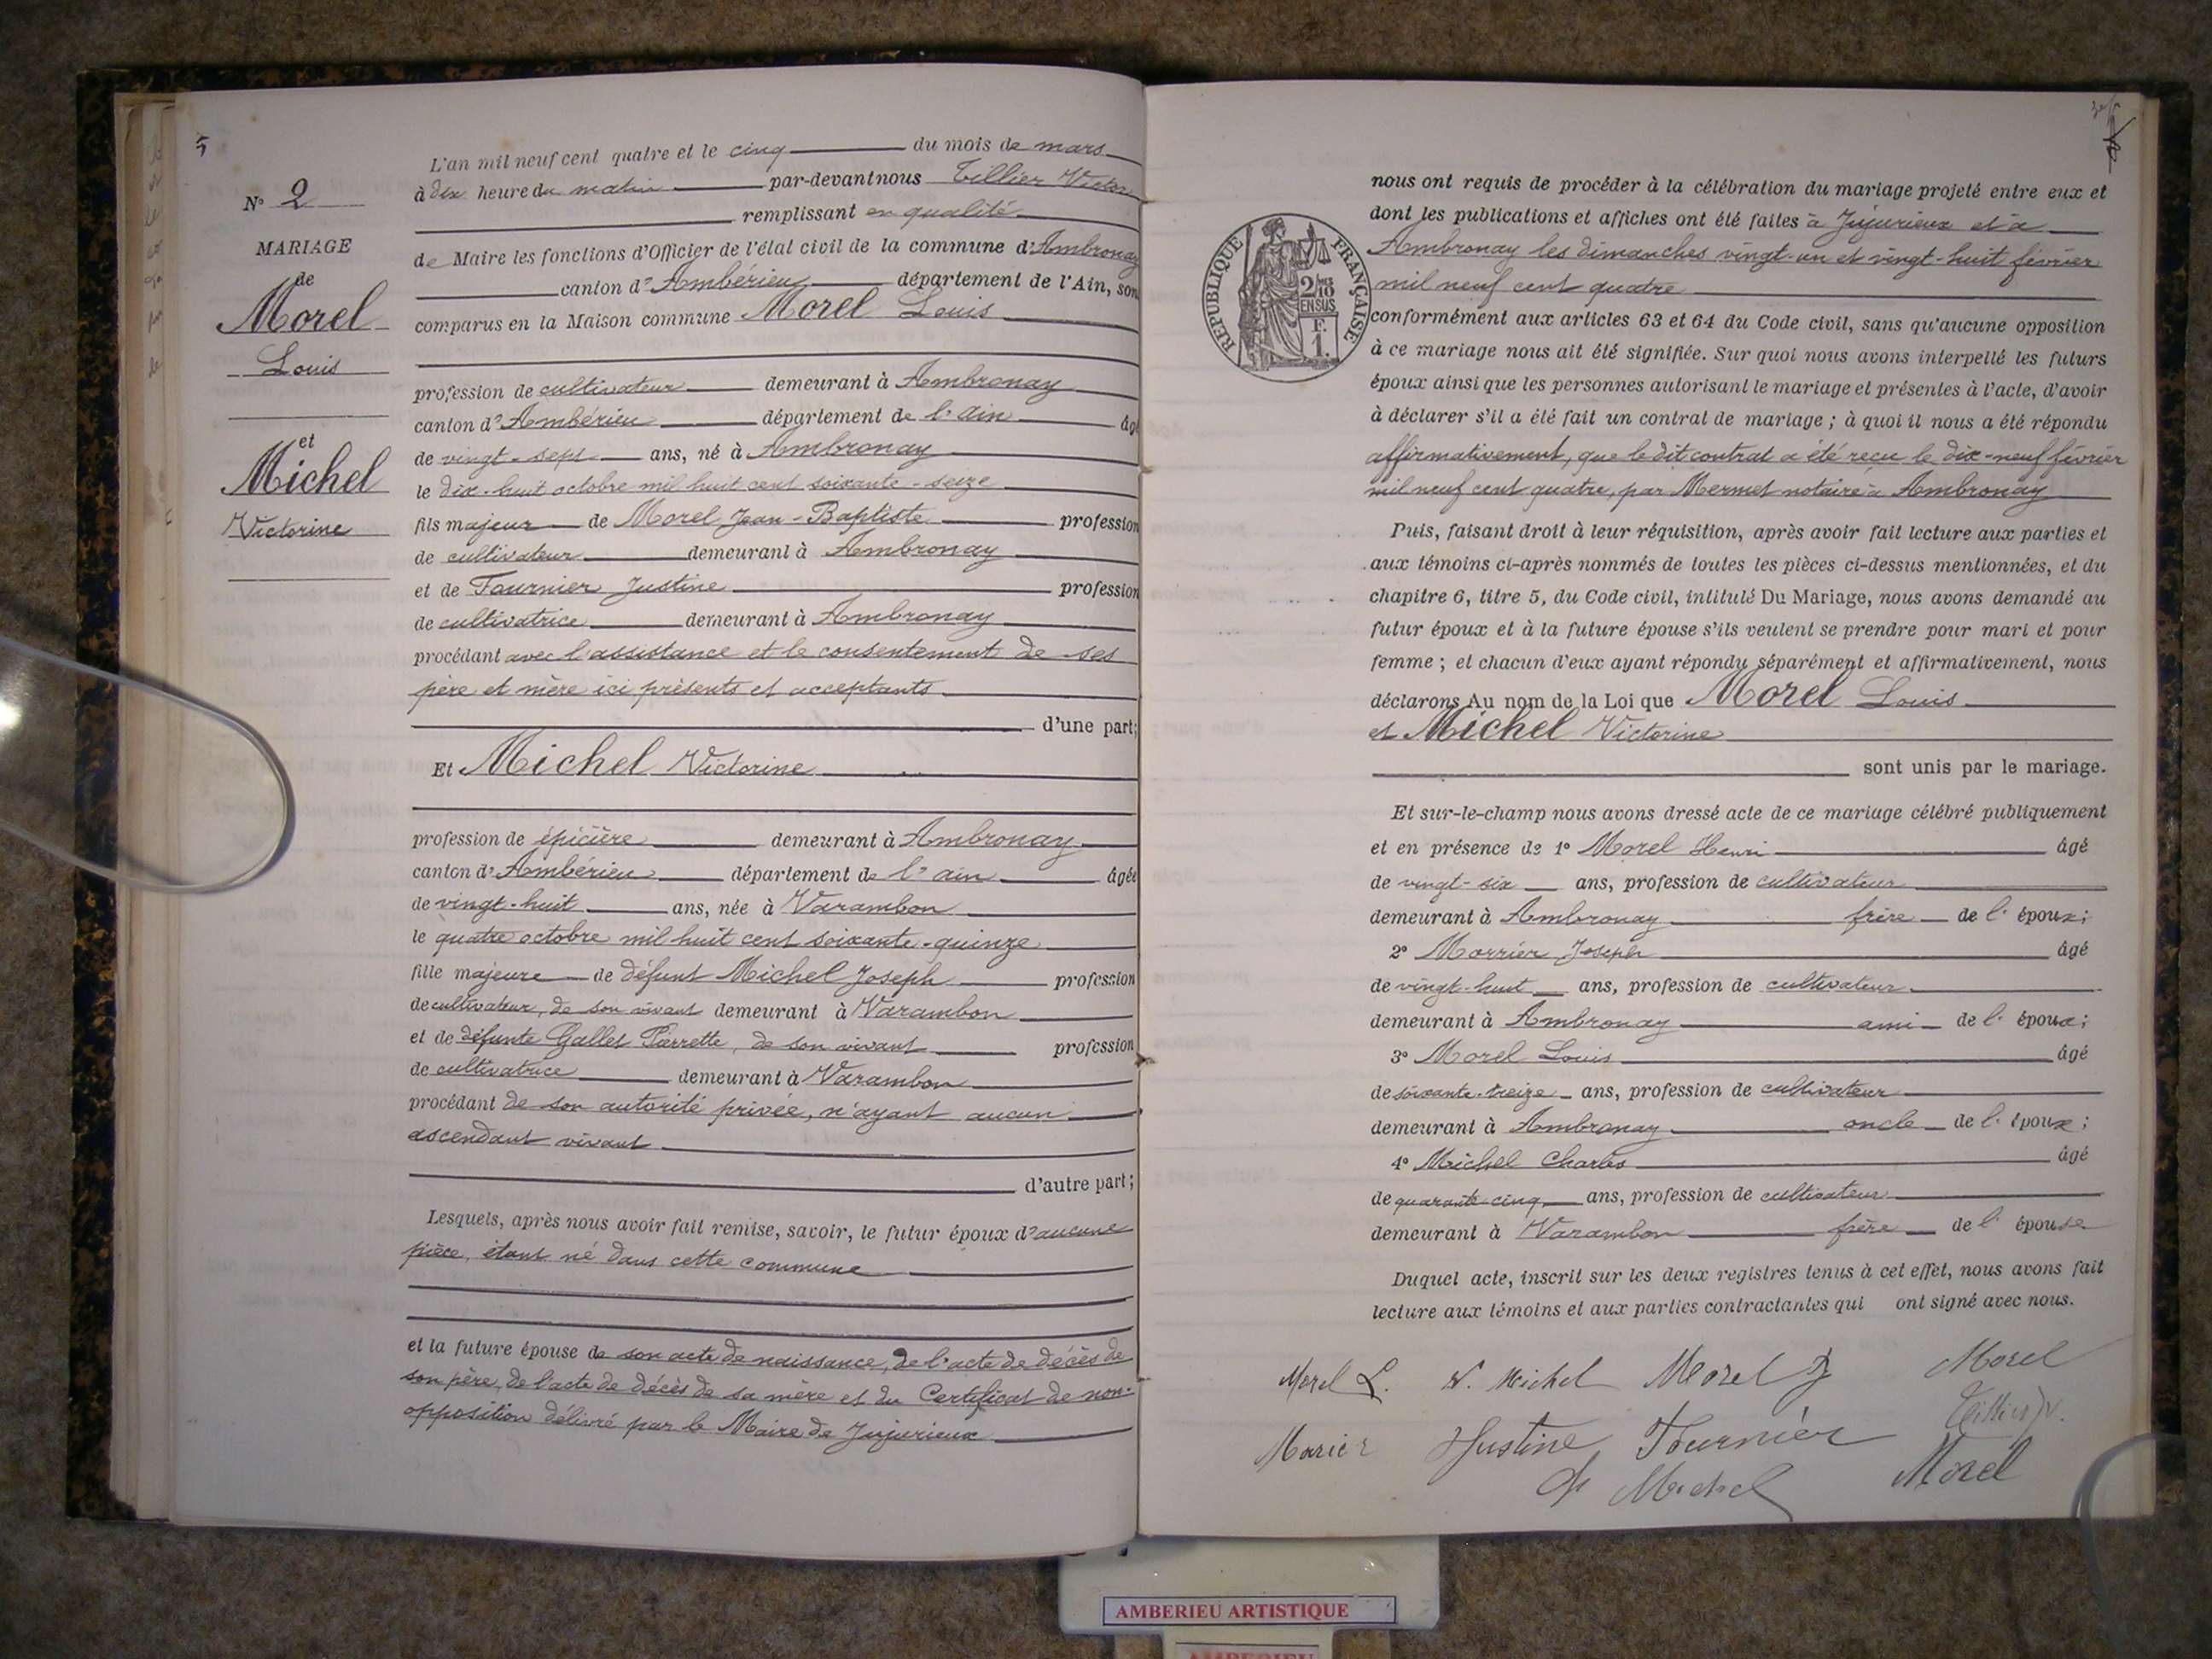 5
L'an mil neuf cent quatre et le cinq du mois de mars
à dix heure du matin par-devant nous Tillier Victor
remplissant en qualité
de Maire les fonctions d'Officier de l'état civil de la commune d'Ambronay
canton d'Ambérieu département de l'Ain, son
comparus en la Maison commune Morel Louis
profession de cultivateur demeurant à Ambronay
canton d'Ambérieu département de l'ain âgé
de vingt-sept ans, né à Ambronay
le dix-huit octobre mil huit cent soixante-seize
fils majeur de Morel Jean-Baptiste profession
de cultivateur demeurant à Ambronay
et de Fournier Justine profession
de cultivatrice demeurant à Ambronay
procédant avec l'assistance et le consentement de ses
père et mère ici présents et acceptants
d'une part;
Et Michel Victorine
profession de épicière demeurant à Ambronay
canton d'Ambérieu département de l'ain âgée
de vingt-huit ans, née à Varambon
le quatre octobre mil huit cent soixante-quinze
fille majeure de défunt Michel Joseph profession
de cultivateur, de son vivant demeurant à Varambon
et de défunte Gallet Pierrette, de son vivant profession
de cultivatrice demeurant à Varambon
procédant de son autorité privée, n'ayant aucun
ascendant vivant
d'autre part;
Lesquels, après nous avoir fait remise, savoir, le futur époux d'aucune
pièce, étant né dans cette commune
et la future épouse de son acte de naissance, de l'acte de décès de
son père, de l'acte de décès de sa mère et du Certificat de non-
opposition délivré par le Maire de Jujurieux
N° 2
MARIAGE
de
Morel
Louis
et
Michel
Victorine
nous ont requis de procéder à la célébration du mariage projeté entre eux et
dont les publications et affiches ont été faites à Jujurieux et à
Ambronay les dimanches vingt-un et vingt-huit février
mil neuf cent quatre
conformément aux articles 63 et 64 du Code civil, sans qu'aucune opposition
à ce mariage nous ait été signifiée. Sur quoi nous avons interpellé les futurs
époux ainsi que les personnes autorisant le mariage et présentes à l'acte, d'avoir
à déclarer s'il a été fait un contrat de mariage ; à quoi il nous a été répondu
affirmativement, que le dit contrat a été reçu le dix-neuf février
mil neuf cent quatre, par Mermet notaire à Ambronay
Puis, faisant droit à leur réquisition, après avoir fait lecture aux parties et
aux témoins ci-après nommés de toutes les pièces ci-dessus mentionnées, et du
chapitre 6, titre 5, du Code civil, intitulé Du Mariage, nous avons demandé au
futur époux et à la future épouse s'ils veulent se prendre pour mari et pour
femme ; et chacun d'eux ayant répondu séparément et affirmativement, nous
déclarons Au nom de la Loi que Morel Louis
et Michel Victorine
sont unis par le mariage.
Et sur-le-champ nous avons dressé acte de ce mariage célébré publiquement
et en présence de 1° Morel Henri âgé
de vingt-six ans, profession de cultivateur
demeurant à Ambronay frère de l' époux;
2° Morrier Joseph âgé
de vingt-huit ans, profession de cultivateur
demeurant à Ambronay ami de l' époux;
3° Morel Louis âgé
de soixante-treize ans, profession de cultivateur
demeurant à Ambronay oncle de l' époux;
4° Michel Charles âgé
de quarante-cinq ans, profession de cultivateur
demeurant à Varambon frère de l' épouse
Duquel acte, inscrit sur les deux registres tenus à cet effet, nous avons fait
lecture aux témoins et aux parties contractantes qui ont signé avec nous.
Morel L. V. Michel Morel J Morel
Tillier V.
Morier Justine Fournier Morel
Ch Michel
RÉPUBLIQUE FRANÇAISE
2/10
EN SUS
F.
1.
AMBERIEU ARTISTIQUE
AMBERIEU